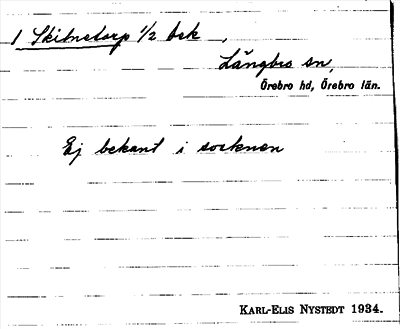 1 Skitnetorp 1/2 bek,
Långbro sn,
Örebro hd, Örebro län.
Ej bekant i socknen
KARL-ELIS NYSTEDT 1934.